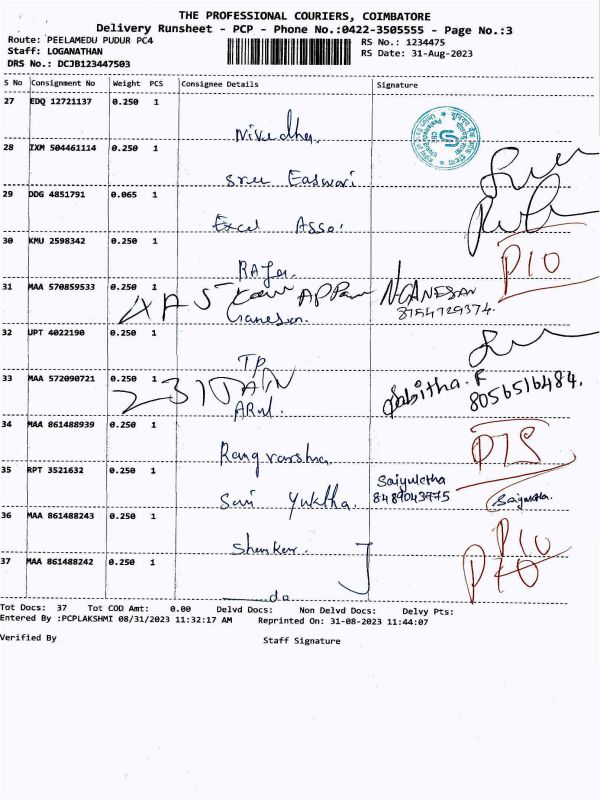 THE PROFESSIONAL COURIERS, COIMBATORE
Delivery Runsheet - PCP - Phone No.:0422-3505555 - Page No.:3
Route: PEELAMEDU PUDUR PC4
RS No.: 1234475
Staff: LOGANATHAN
RS Date: 31-Aug-2023
DRS No.: DCJB123447503
S No Consignment No Weight PCS Consignee Details Signature
27 EDQ 12721137 0.250 1
Nivedha
28 IXM 504461114 0.250 1
Sree Easwari
29 DDG 4851791 0.065 1
Excel Asso.
30 KMU 2598342 0.250 1
RAJa
PIO
31 MAA 570859533 0.250 1
NGANESAN
Ganesan
8754729374.
32 UPT 4022190 0.250 1
TP
33 MAA 572090721 0.250 1
Sabitha.R
8056516484.
ARul.
34 MAA 861488939 0.250 1
35 RPT 3521632 0.250 1
Saiyuktha
8489043975
Sai Yuktha.
36 MAA 861488243 0.250 1
Shenker.
PIO
37 MAA 861488242 0.250 1
do
Tot Docs: 37 Tot COD Amt: 0.00 Delvd Docs: Non Delvd Docs: Delvy Pts:
Entered By :PCPLAKSHMI 08/31/2023 11:32:17 AM Reprinted On: 31-08-2023 11:44:07
Verified By Staff Signature